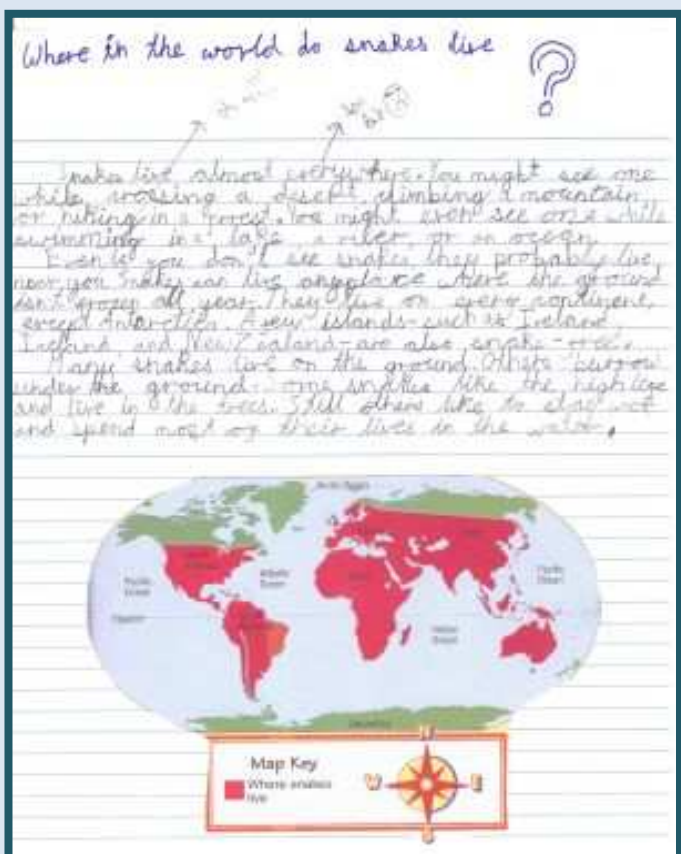 Where in the world do snakes live ?
Snakes live almost everywhere. You might see one
while crossing a desert, climbing a mountain,
or hiking in a forest. You might even see one while
swimming in a lake, a river, or an ocean.
Even if you don't see snakes they probably live
near you. Snakes can live anyplace where the ground
isn't frozen all year. They live on every continent,
except Antarctica. A few islands-such as Ireland,
Iceland, and New Zealand-are also snake-free.
Many snakes live on the ground. Others burrow
under the ground. Some snakes like the high life
and live in the trees. Still others like to stay wet
and spend most of their lives in the water.
Pacific
Ocean
Atlantic
Ocean
Pacific
Ocean
Equator
Indian
Ocean
Map Key
Where snakes
live
N
W
E
S